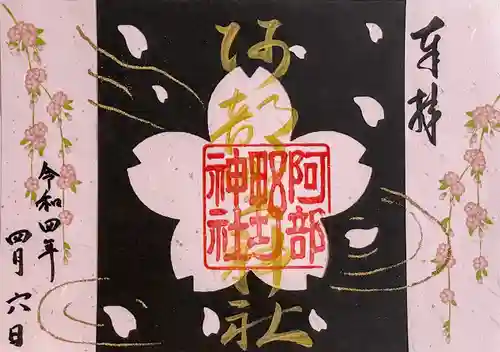 奉拝
阿部野神社
阿部
神社
令和四年
四月六日